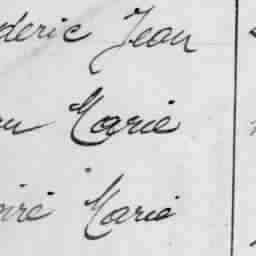 deric Jean
Marie
Marie